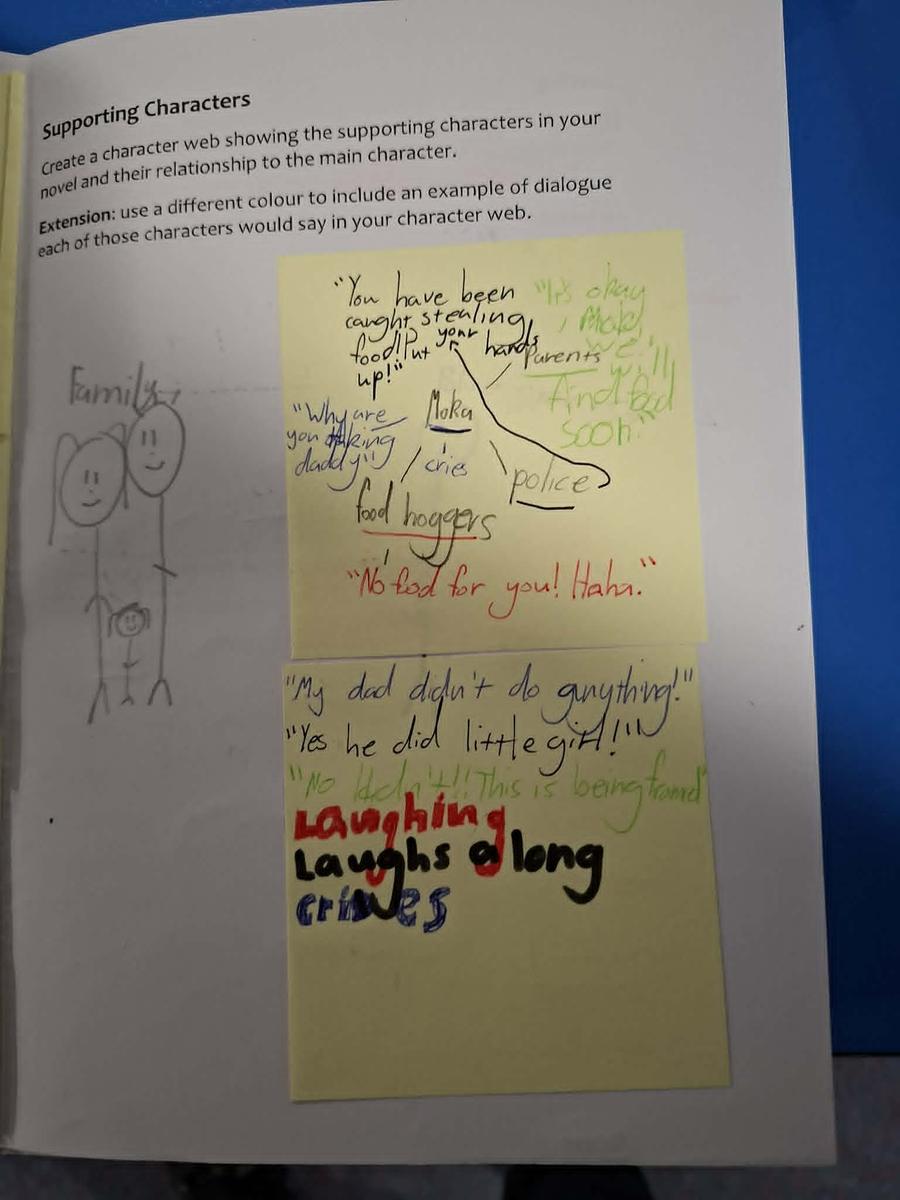 Supporting Characters
Create a character web showing the supporting characters in your
novel and their relationship to the main character.
Extension: use a different colour to include an example of dialogue
each of those characters would say in your character web.
Family
"You have been
caught stealing
food! Put your hands
up!"
"It's okay
, Moka,
we'll
find food
soon."
Parents
Moka
"Why are
you taking
daddy"
cries
police
food hoggers
"No food for you! Haha."
"My dad didn't do anything!"
"Yes he did little girl!"
"No I didn't!! This is being framed"
Laughing
Laughs along